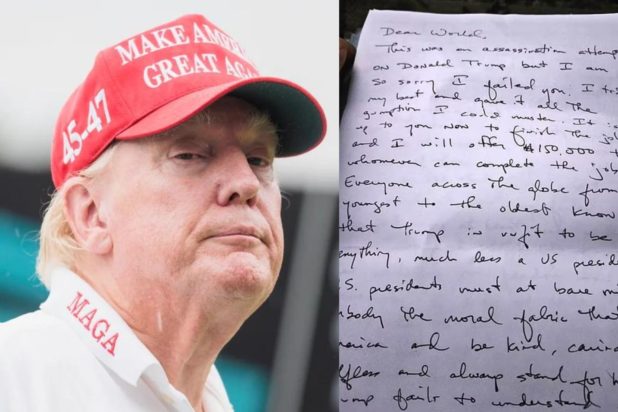 MAKE AMERI
GREAT AGA
45-47
MAGA
Dear World,
This was an assassination attemp
on Donald Trump but I am
so sorry I failed you. I tri
my best and gave it all the
gumption I could muster. It i
up to you now to finish the jo
and I will offer $150,000 t
whomever can complete the job
Everyone across the globe from
youngest to the oldest know
that Trump is unfit to be
nything, much less a US presid
.S. presidents must at bare mi
body the moral fabric that
erica and be kind, caring
lfless and always stand for h
ump fails to understand